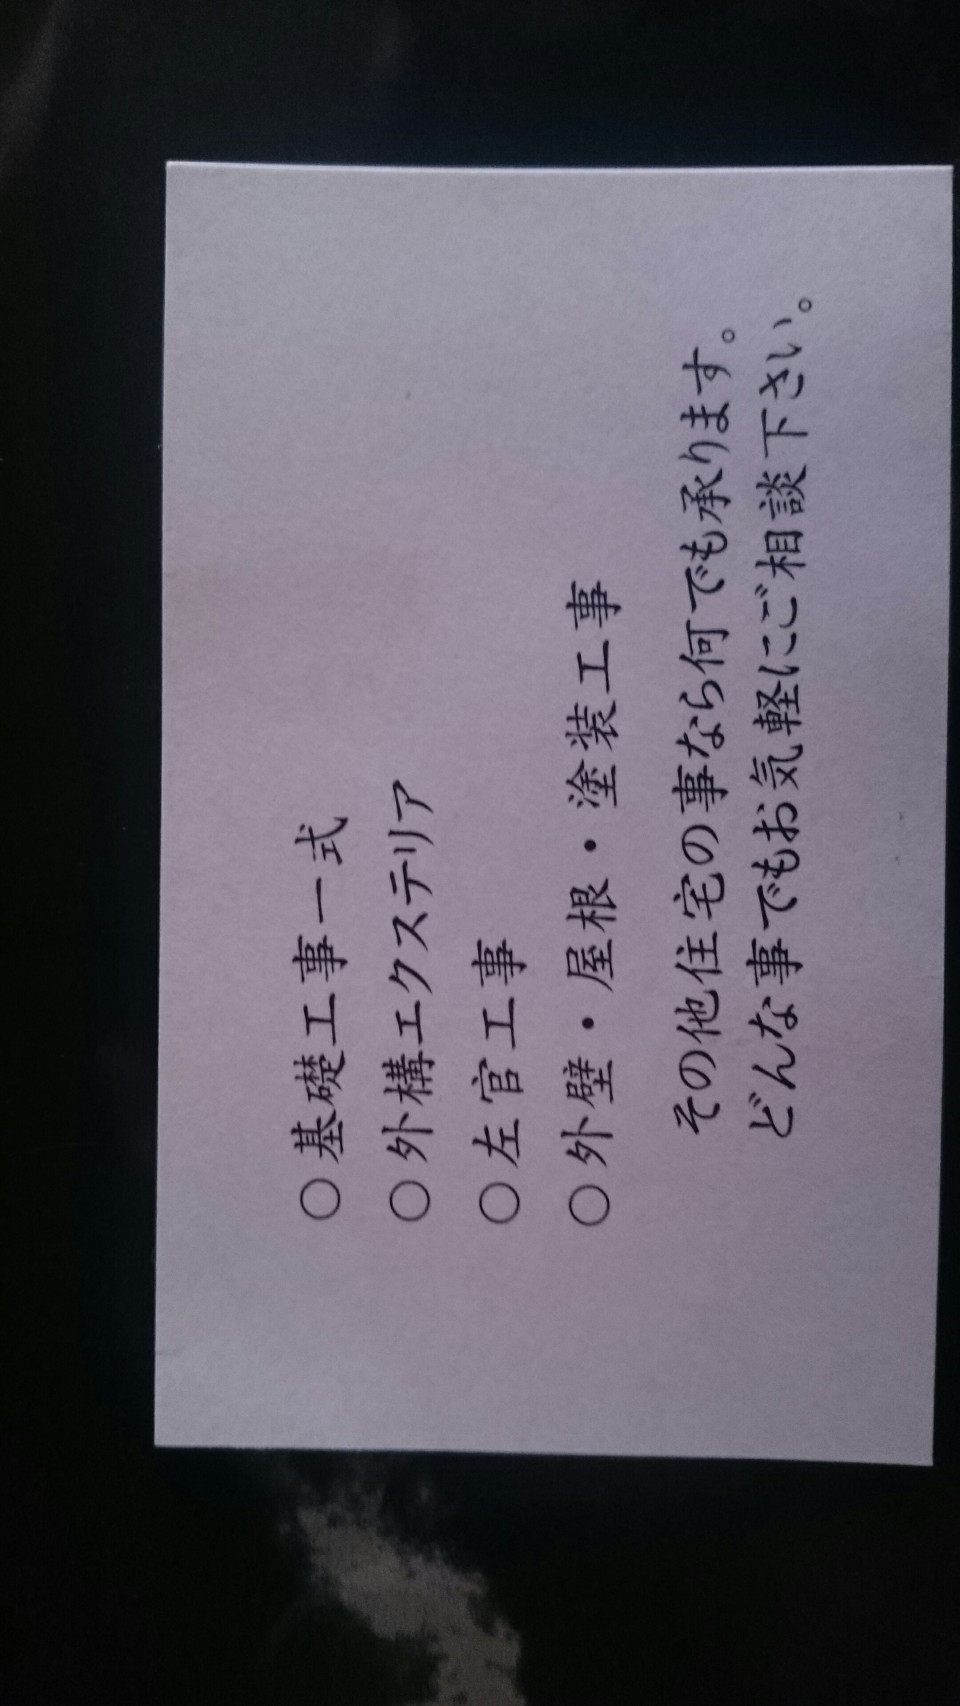 ○基礎工事一式
○外構エクステリア
○左官工事
○外壁・屋根・塗装工事
その他住宅の事なら何でも承ります。
どんな事でもお気軽にご相談下さい。